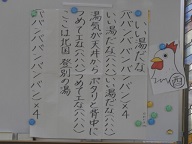 いい湯だな
ババンバ バンバンバン×4
いい湯だな(ハハ)いい湯だな(ハハ)
湯気が天井から ポタリと背中に
つめてエな(ハハ)つめてエな(ハハ)
ここは北国 登別の湯
ババンバ バンバンバン×4
酉